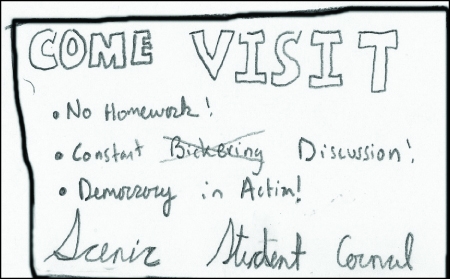 COME VISIT
• No Homework!
• Constant Bickering Discussion!
• Democracy in Action!
Scenic Student Council